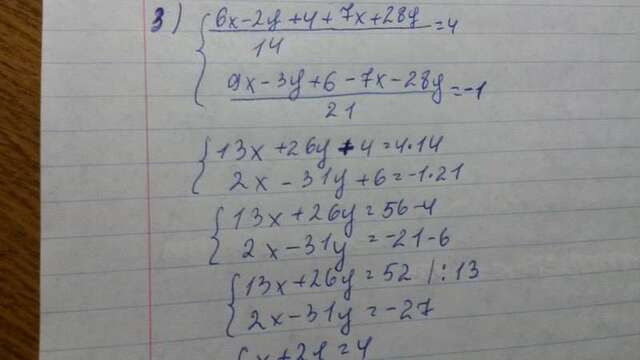 3) { 6x-2y+4+7x+28y = 4
14
9x-3y+6-7x-28y = -1
21
{ 13x+26y+4=4·14
2x-31y+6=-1·21
{ 13x+26y=56-4
2x-31y=-21-6
{ 13x+26y=52 /:13
2x-31y=-27
{ x+2y=4